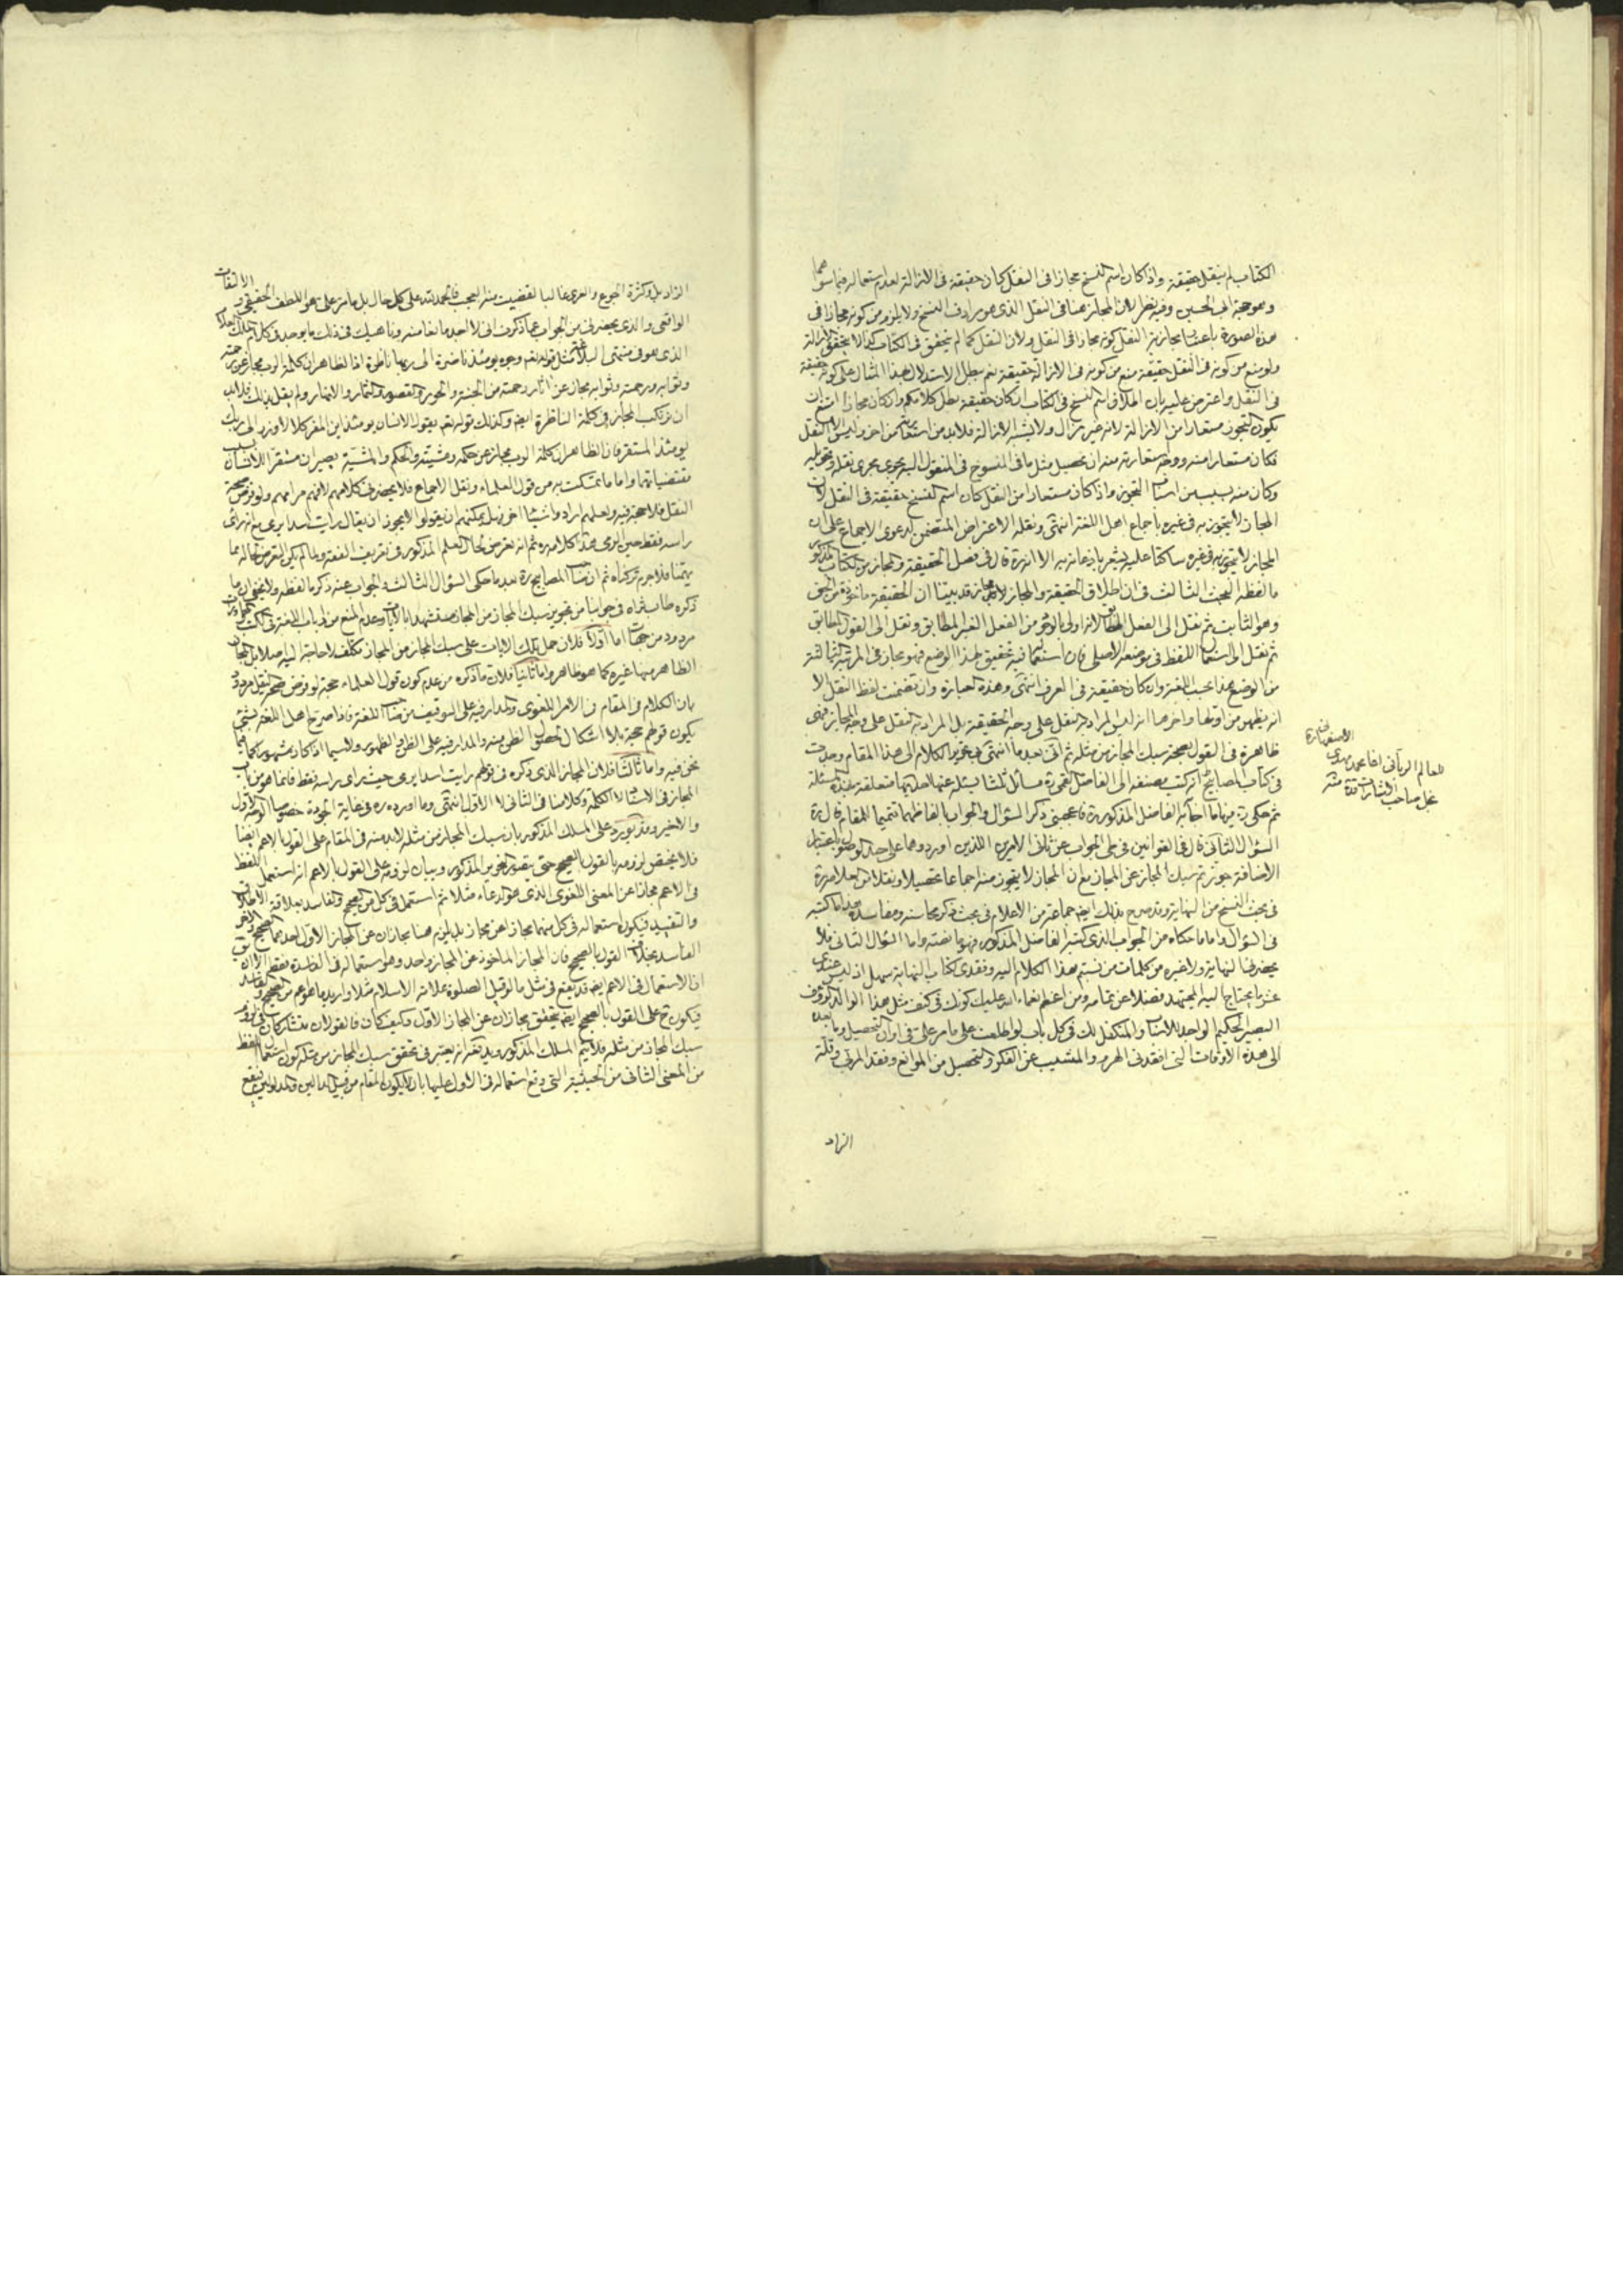 الكتاب لم ينقل حقيقة واذا كان اسم النسخ مجازا في النقل كان حقيقة في الازالة لعدم استعماله فيما سواهما
وهو حجة ابي الحسين وفيه نظر لان المجاز هنا في النقل الذي هو مرادف النسخ ولا يلزم من كونه مجازا في
هذه الصورة باعتبار مجازية النقل كونه مجازا في النقل ولان النقل كما لم يتحقق في الكتاب كذا لا يتحقق الازالة
ولو منع من كونه في النقل حقيقة منع من كونه في الازالة حقيقة نعم يبطل الاستدلال بهذا المثال على كونه حقيقة
في النقل واعترض عليه بان اطلاق اسم النسخ في الكتاب ان كان حقيقة بطل كلامكم وان كان مجازا امتنع ان
يكون التجوز مستعارا من الازالة لانه غير مزال ولا يشبه الازالة فلا بد من استعارته من اخر وليس الا النقل
فكان مستعارا منه ووجه استعارته منه ان تحصيل مثل ما في المنسوخ في المنقول اليه يجري مجرى نقله وتحويله
وكان منه بسبب من اسباب التجوز واذا كان مستعارا من النقل كان اسم النسخ حقيقة في النقل لان
المجاز لا يتجوز به في غيره باجماع اهل اللغة انتهى ونقله الاعتراض المتضمن لدعوى الاجماع على ان
المجاز لا يتجوز به في غيره ساكتا عليه يشعر باذعانه به الا انه ره قال في فصل الحقيقة والمجاز من الكتاب المذكور
ما لفظه البحث الثالث في ان اطلاق الحقيقة والمجاز مجاز قد بينا ان الحقيقة ماخوذة من الحق
وهو الثابت ثم نقل الى الفعل المطابق لانه اولى بالوجود من الفعل الغير المطابق ونقل الى القول المطابق
ثم نقل الى استعمال اللفظ في موضعه الاصلي فان استعماله فيه تحقيق لهذا الوضع فهو مجاز في المرتبة الثالثة
من الوضع هذا بحسب اللغة وان كان حقيقة في العرف انتهى وهذه العبارة وان تضمنت لفظ النقل الا
انه يظهر من اولها واخرها انه ليس المراد به النقل على وجه الحقيقة بل المراد به النقل على وجه المجاز فهي
ظاهرة في القول بصحة سبك المجاز من مثله ثم اني بعد ما انتهى بي تحرير الكلام الى هذا المقام وجدت
في كتاب المصابيح انه كتب مصنفه الى الفاضل القمي ره مسائل يسئله عنها احديها متعلقة بهذه المسئلة
ثم حكى ره فيها ما اجاب به الفاضل المذكور ره فاعجبني ذكر السؤال والجواب بالفاظهما تتميما للمقام قال ره
السؤال الثاني قال في القوانين في طي الجواب عن ثاني الامرين اللذين اوردوهما على
الاضافة جوزتم سبك المجاز عن المجاز مع ان المجاز لا يتجوز منه اجماعا تحصيلا ونقلا من العلامة ره
في بحث النسخ من النهاية وقد صرح بذلك ايضا جماعة من الاعلام في بحث ذكر محاسنه ومفاسده هذا ما كتبه
في السؤال واما ما حكاه من الجواب الذي كتبه الفاضل المذكور فهو ما نصه واما السؤال الثاني فلا
يحضرني النهاية ولا غيره من كلمات من نسبتم هذا الكلام اليه وفقدي لكتاب النهاية سهل اذ ليس عندي
عشر ما يحتاج اليه المجتهد فضلا عن تمامه ومن اعظم نعماء الله عليك كونك في كنف مثل هذا الوالد الرؤف
البصير الحكيم الواحد والمتكفل لك في كل باب لو اطلعت على ما مر علي في اوان التحصيل وما بعده
الى هذه الاوقات التي افقدني الهرم والمشيب عن الفكر والتحصيل من الموانع وفقد المربي وقلة
الزاد
للعالم الرباني اقا محمد مهدي
نجل صاحب الاشارات قدة منه
الزاد بل وكثرة الجوع والعرى غالبا لقضيت منه العجب فالحمد لله على كل حال بل ما مر علي هو اللطف الحقيقي والالتفات
الواقعي والذي يحضرني من الجواب عما ذكرت اني لا اجد مانعا منه وناهيك في ذلك ما يوجد في كلام الملك العلام
الذي هو في منتهى البلاغة مثل قوله تعالى وجوه يومئذ ناضرة الى ربها ناظرة اذ الظاهر ان كلمة الرب مجاز عن رحمته
وثوابه ورحمته وثوابه مجاز عن اثار رحمته من الجنة والحور والقصور والثمار والانهار ولم يقل
ان نرتكب المجاز في كلمة الناظرة ايضا وكذلك قوله تعالى يقول الانسان يومئذ اين المفر كلا لا وزر الى ربك
يومئذ المستقر فان الظاهر ان كلمة الرب مجاز عن حكمه ومشيته والحكم والمشية يصيران مستقرا للانسان
واما ما تمسكت به من قول العلماء ونقل الاجماع فلا يحضرني كلامهم لافهم مرامهم ولو فرض صحة
النقل فلا حجة فيه ولعلهم ارادوا شيئا اخر فهل يمكنهم ان يقولوا لا يجوز ان يقال رايت اسدا يرمي مع انه راى
راسه فقط حين الرمي هذا كلامه ره ثم انه تعرض لحال العلم المذكور في تعريف الفقه ولما لم يكن التعرض لحاله مما
يهمنا فلا جرم تركناه ثم ان صاحب المصابيح ره بعد ما حكى السؤال الثالث والجواب عنه ذكر ما لفظه ولا يخفى ان ما
ذكره طاب ثراه في جوابنا من تجويز سبك المجاز من المجاز مستشهدا بالايات وعدم المنع من ارباب اللغة
مردود من جهات اما اولا فلان حمل تلك الايات على سبك المجاز من المجاز تكلف لا حاجة اليه اصلا بل المجاز
الظاهر منها غيره كما هو ظاهر واما ثانيا فلان ما ذكره من عدم كون قول العلماء حجة لو فرض صحة النقل مردود
بان الكلام في المقام في الامر اللغوي والمدار فيه على التوقيف من صاحب اللغة فاذا صرح اهل اللغة بشيء
يكون قولهم حجة بلا اشكال لحصول الظن منه والمدار فيه على الظن والظهور ولا سيما اذا كان مشهورا كما فيما
نحن فيه واما ثالثا فلان المجاز الذي ذكره في قولهم رايت اسدا يرمي حيث راى راسه فقط فانما هو من باب
المجاز في الاسناد لا الكلمة وكلامنا في الثاني لا الاول انتهى وما اورده ره في غاية الجودة خصوصا الوجه الاول
والاخير وقد يورد على المسلك المذكور بان سبك المجاز من مثله لا بد منه في المقام على القول بالاعم ايضا
فلا يختص لزومه بالقول بالصحيح حتى يتقور التحرير المذكور وبيان لزومه على القول بالاعم انه استعمل اللفظ
في الاعم مجازا عن المعنى اللغوي الذي هو الدعاء مثلا ثم استعمل في كل من الصحيح والفاسد بعلاقة الاطلاق
والتقييد فيكون استعماله في كل منهما مجازا عن مجاز بل يلزم هنا مجازان عن المجاز الاول احدهما الصحيح والاخر
الفاسد بخلاف القول بالصحيح فان المجاز الماخوذ عن المجاز واحد وهو استعماله في الفاسدة فقط الا ان
ان الاستعمال في الاعم ايضا قد يقع في مثل ما لو قيل الصلوة علامة الاسلام مثلا واريد ما هو اعم من الصحيح والفاسد
فيكون ح على القول بالصحيح ايضا يتحقق مجازان عن المجاز الاول وكيف كان فالقولان متشاركان في لزوم
سبك المجاز من مثله فلا يتم المسلك المذكور ويدفعه انه يعتبر في تحقق سبك المجاز من مثله كون استعمال اللفظ
من المعنى الثاني من الحيثية التي وقع استعماله في الاول عليها بان يكون المقام من قبيل